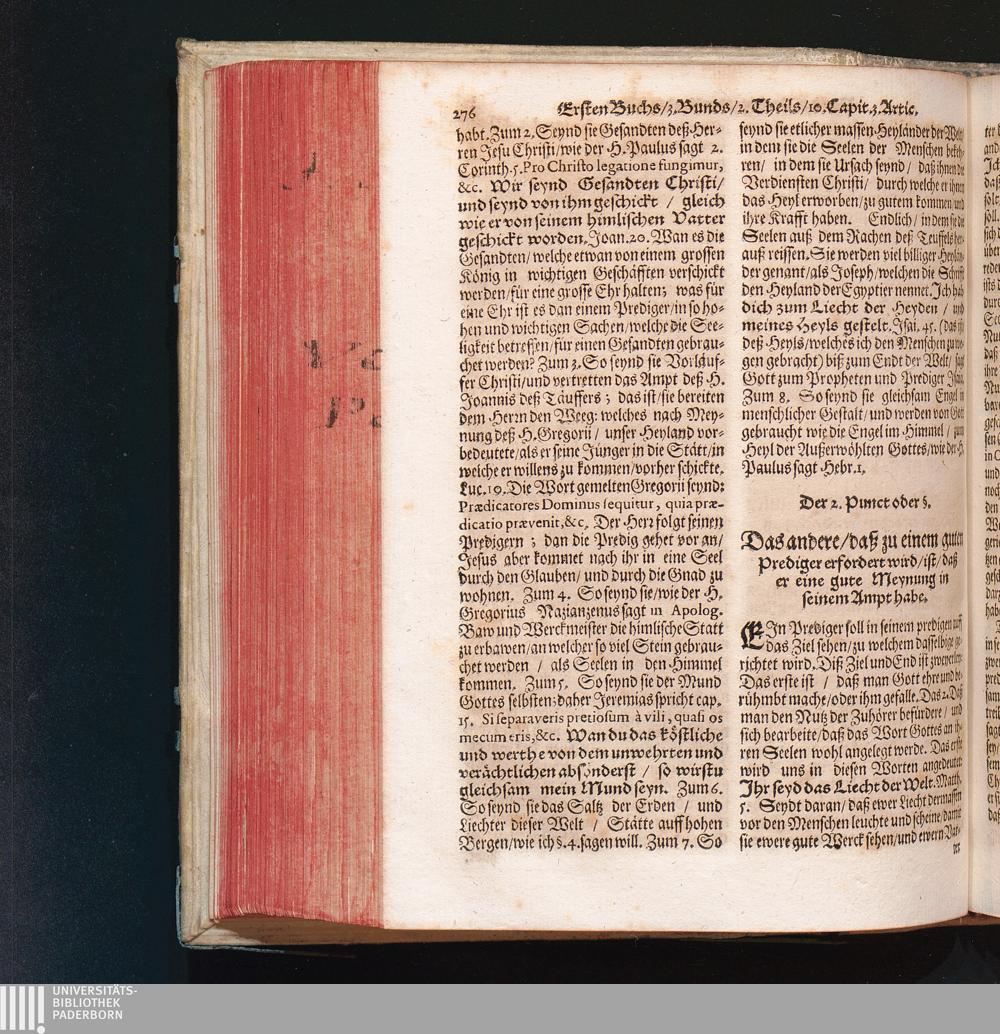 276 Ersten Buchs/3. Bunds/2. Theils/10. Capit. 3. Artic.
habt. Zum 2. Seynd sie Gesandten deß Her-
ren Jesu Christi/wie der H. Paulus sagt 2.
Corinth. 5. Pro Christo legatione fungimur,
&c. Wir seynd Gesandten Christi/
und seynd von ihm geschickt / gleich
wie er von seinem himlischen Vatter
geschickt worden. Joan. 20. Wan es die
Gesandten/welche etwan von einem grossen
König in wichtigen Geschäfften verschickt
werden/für eine grosse Ehr halten; was für
eine Ehr ist es dan einem Prediger/in so ho-
hen und wichtigen Sachen/welche die See-
ligkeit betreffen/für einen Gesandten gebrau-
chet werden? Zum 3. So seynd sie Vorläuf-
fer Christi/und vertretten das Ampt deß H.
Joannis deß Täuffers; das ist/sie bereiten
dem Herrn den Weeg: welches nach Mey-
nung deß H. Gregorii / unser Heyland vor-
bedeutete/als er seine Jünger in die Stätt/in
welche er willens zu kommen/vorher schickte.
Luc. 10. Die Wort gemelten Gregorii seynd:
Prædicatores Dominus sequitur, quia præ-
dicatio prævenit, &c. Der Herr folgt seinen
Predigern; dan die Predig gehet vor an/
Jesus aber kommet nach ihr in eine Seel
durch den Glauben/ und durch die Gnad zu
wohnen. Zum 4. So seynd sie/wie der H.
Gregorius Nazianzenus sagt in Apolog.
Baw und Werckmeister die himlische Statt
zu erbawen/an welcher so viel Stein gebrau-
chet werden / als Seelen in den Himmel
kommen. Zum 5. So seynd sie der Mund
Gottes selbsten; daher Jeremias spricht cap.
15. Si separaveris pretiosum à vili, quasi os
mecum eris, &c. Wan du das köstliche
und werthe von dem unwehrten und
verächtlichen absönderst / so wirstu
gleichsam mein Mund seyn. Zum 6.
So seynd sie das Saltz der Erden / und
Liechter dieser Welt / Stätte auff hohen
Bergen/wie ich §. 4. sagen will. Zum 7. So
seynd sie etlicher massen Heyländer der Welt
in dem sie die Seelen der Menschen bekeh-
ren/ in dem sie Ursach seynd / daß ihnen die
Verdiensten Christi/ durch welche er ihnen
das Heyl erworben/zu gutem kommen/und
ihre Krafft haben. Endlich/ in dem sie die
Seelen auß dem Rachen deß Teuffels her-
auß reissen. Sie werden viel billiger Heylän-
der genant/als Joseph/welchen die Schrifft
den Heyland der Egyptier nennet. Ich hab
dich zum Liecht der Heyden / und
meines Heyls gestelt. Isai. 45. (das ist
deß Heyls/welches ich den Menschen zu we-
gen gebracht) biß zum Endt der Welt/ sagt
Gott zum Propheten und Prediger Isaia.
Zum 8. So seynd sie gleichsam Engel in
menschlicher Gestalt/und werden von Gott
gebraucht wie die Engel im Himmel / zum
Heyl der Außerwöhlten Gottes/wie der H.
Paulus sagt Hebr. 1.
Der 2. Punct oder §.
Das andere/daß zu einem guten
Prediger erfordert wird/ist/daß
er eine gute Meynung in
seinem Ampt habe.
EIn Prediger soll in seinem predigen auff
das Ziel sehen/zu welchem dasselbige ge-
richtet wird. Diß Ziel und End ist zweyerley.
Das erste ist / daß man Gott ehre und be-
rühmbt mache/oder ihm gefalle. Das 2. Daß
man den Nutz der Zuhörer befürdere / und
sich bearbeite/daß das Wort Gottes an ih-
ren Seelen wohl angelegt werde. Das erste
wird uns in diesen Worten angedeutet:
Ihr seyd das Liecht der Welt. Matth.
5. Seydt daran/ daß ewer Liecht dermassen
vor den Menschen leuchte und scheine/damit
sie ewere gute Werck sehen/und ewern Vat-
ter
UNIVERSITÄTS-
BIBLIOTHEK
PADERBORN